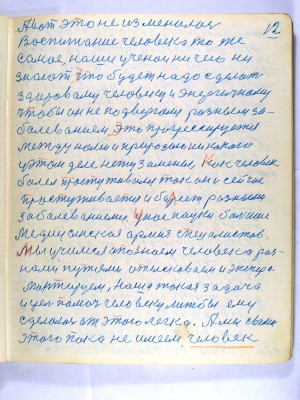 12
А вот это не изменилось
Воспитание человека то же
самое, наши ученои ничего ни
знают что будет надо сделат
здаровому человеку и энергичному
чтобы он не подвергалу разным за-
болеваниям. Это прогрессируется
между нами и природой никакого
у этом деле нету замены. Как человек
болел простуживалу так он и сейчас
простуживается и болеет разными
заболеваниями. У нас науки большие
медицинская армия специалистов.
Мы учимся а познаем человека раз-
ными путями отыскиваем и экспери
мантируем, наша такая задача
и цел помоч человеку штобы ему
сделалос от этого легка. А мы сваим
этого пока не имеем человек